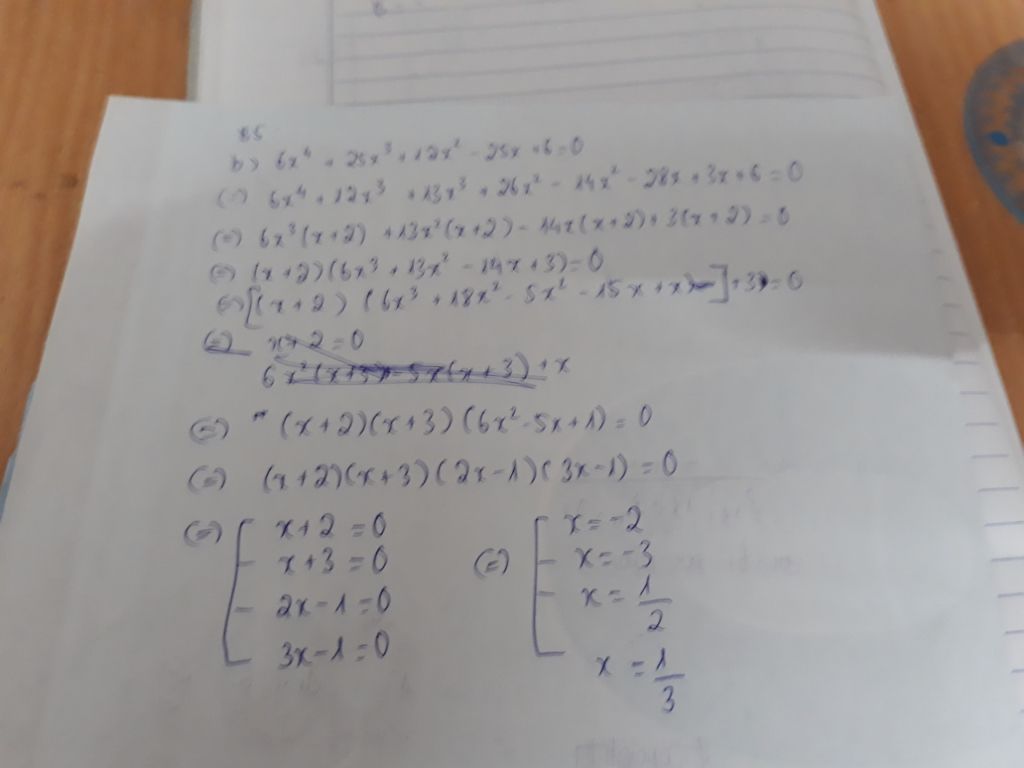 B5
b) 6x⁴ + 25x³ + 12x² - 25x + 6 = 0
(=) 6x⁴ + 12x³ + 13x³ + 26x² - 14x² - 28x + 3x + 6 = 0
(=) 6x³(x+2) + 13x²(x+2) - 14x(x+2) + 3(x+2) = 0
(=) (x+2)(6x³ + 13x² - 14x + 3) = 0
(=) [(x+2) (6x³ + 18x² - 5x² - 15x + x) ] + 3) = 0
(=) x + 2 = 0
6x²(x+3) - 5x(x+3) + x
(=) (x+2)(x+3)(6x² - 5x + 1) = 0
(=) (x+2)(x+3)(2x-1)(3x-1) = 0
(=) [ x+2 = 0 (=) [ x = -2
x+3 = 0 x = -3
2x-1 = 0 x = 1/2
3x-1 = 0 x = 1/3